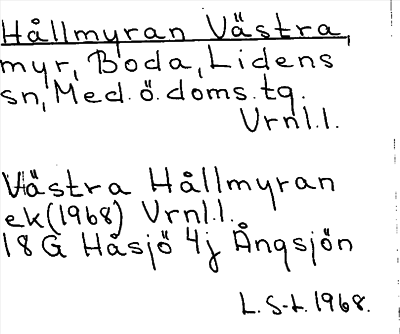 Hållmyran Västra,
myr, Boda, Lidens
sn, Med. ö. doms. tg.
Vrnl.l.
Västra Hållmyran
ek(1968) Vrnl.l.
18 G Håsjö 4j Ångsjön
L. S-L. 1968.